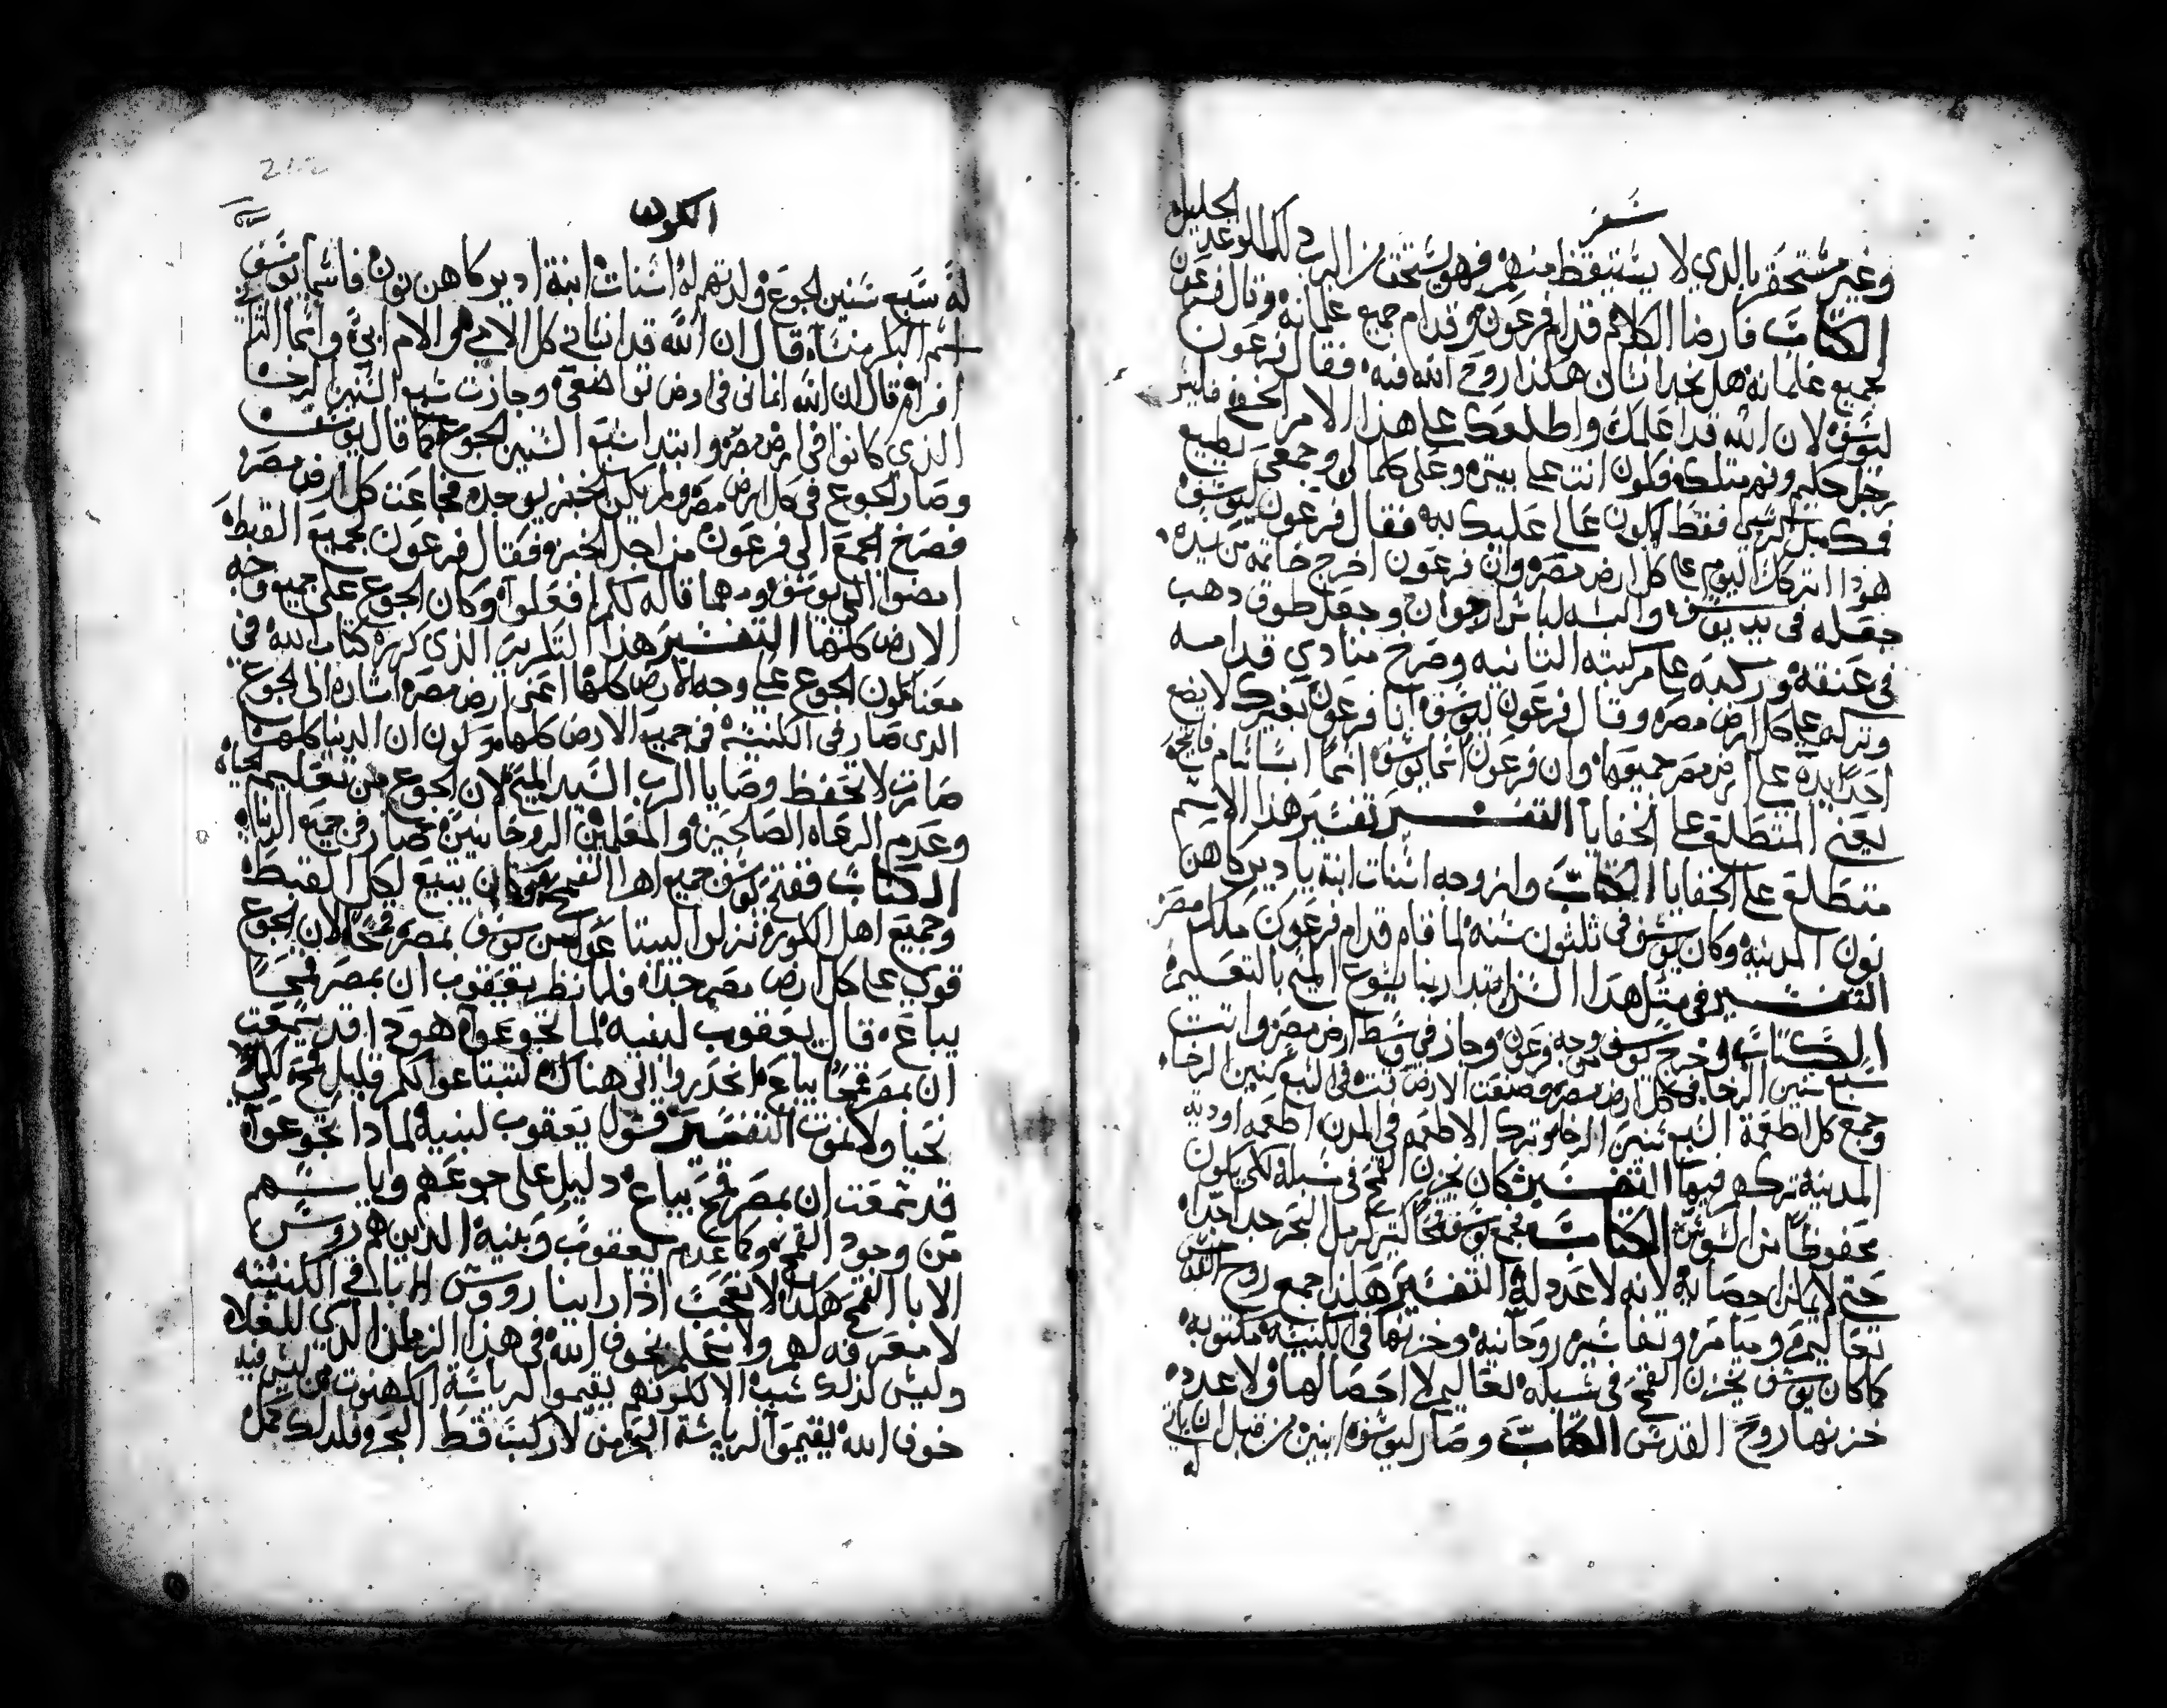 سفر
وغير مستحقر بالذي لا يستيقظ منهم فهو يستحق من الرب ذلك الموعد الجليل
الكتاب فارضا الكلام قدام فرعون وقدام جميع غلمانه وقال فرعون
لجميع غلمانه هل نجد انسان هكذا روح الله فيه فقال فرعون
ليوسف لان الله قد اعلمك واطلعك على هذا الامر الخفي فليس
رجل حكيم وفهم مثلك فتكون انت على بيتي وعلى كلما لي وجمعي يطيع
فمك الكرسي فقط اكون عالي عليك به فقال فرعون ليوسف
هوذا اتركك اليوم على كل ارض مصر وان فرعون اخرج خاتمه من يده
جعله في يد يوسف والبسه لباس ارجوان وجعل طوق دهب
في عنقه وركبه على مركبته الثانيه وصرخ منادي قدامه
وتركه على كل ارض مصر وقال فرعون ليوسف انا فرعون بغيرك لا يضع
احد يده على ارض مصر جميعها وان فرعون اسما يوسف اسما
يعني المتطلع على الخفايا التفسير تفسير هذا الاسم
متطلع على الخفايا الكتاب وازوجه اسنات ابنة يادير كاهن
نون المدينه وكان يوسف في ثلثون سنه لما قام قدام فرعون ملك مصر
التفسير في مثل هذا السن ابتدا ربنا يسوع المسيح بالتعليم
الكتاب وخرج يوسف من وجه فرعون وجاز في وسط ارض مصر واتت
سبع سنين الرخا في كل ارض مصر وصنعت الارض في السبع سنين الرخا
وجمع كل اطعمة السبع سنين الرخا وترك الاطعمه في المدن اطعمه اودية
المدينه تركهم فيها التفسير كان يخزن القمح في سبله لكي يكون
محفوظا من السوس الكتاب فجمع يوسف قمحا كثير كرمل البحر جدا جدا
حتى لا يمكن احصايه لانه لا عدد له التفسير هكذا جمع روح القدس
تعاليم وميامر وتفاسير روحانيه وخزنها في الكنيسه مكتوبه
كما كان يوسف يخزن القمح في سبله تعاليم لا احصا لها ولا عدد
خزنها روح القدس الكتاب وصار ليوسف ابنين من قبل ان ياتي
الكون
له سبع سنين الجوع ولدتهم له اسنات ابنة ادير كاهن نون فاسما يوسف
اسم البكر منسا قال ان الله قد انساني كل الامي والام ابي واسما الثاني
افرام قال ان الله انماني في ارض تواضعي وجازت سبع السنين الرخا
الذي كانوا في ارض مصر وابتدا سبع السنين الجوع كما قال يوسف
وصار الجوع في كل ارض مصر ولم يكن الخبز يوجد فجاعت كل ارض مصر
فصرخ الجمع الى فرعون من اجل الخبز فقال فرعون لجميع القبط
امضوا الى يوسف ومهما قاله لكم افعلوا وكان الجوع على جميع وجه
الارض كلها التفسير هذا الثلاث مرات الذي كرره كتاب الله في
معنا كون الجوع على وجه الارض كلها اعني ارض مصر اشاره الى الجوع
الذي صار في الكنيسه في جميع الارض كلها وكون ان الدنيا كلها
صارت لا تحفظ وصايا الرب السيد المسيح لان الجوع من تعليم الحياه
وعدم الرعاه الصالحين والمعلمين الروحانيين صار في جميع الدنيا
الكتاب ففتح يوسف جميع اهرا القمح وكان يبيع لكل القبط
وجميع اهل الكوره نزلوا ليبتاعوا من يوسف بمصر قمحا لان الجوع
قوي على كل ارض مصر جدا فلما نظر يعقوب ان بمصر قمحا
يباع قال يعقوب لبنيه لما تجوعوا هوذا قد سمعت
ان بمصر قمحا يباع انحدروا الى هناك لتبتاعوا لكم قليل قمح لكي
نحيا ولا نموت التفسير قول يعقوب لبنيه لماذا تجوعوا
قد سمعت ان بمصر قمح يباع دليل على جوعهم واياسهم
من وجود القمح وكما عدم يعقوب وبنيه الذين هم روس
الابا القمح هكذا لا تعجب اذا راينا روس الابا في الكنيسه
لا معرفه لهم ولا علم بخوف الله في هذا الزمان الذي للغلا
وليس لذلك سبب الا لكونهم يقيموا لرياسة الكهنوت من ليس فيه
خوف الله يقيموا لرياسة البحر من لا ركب قط البحر فلذلك كمل